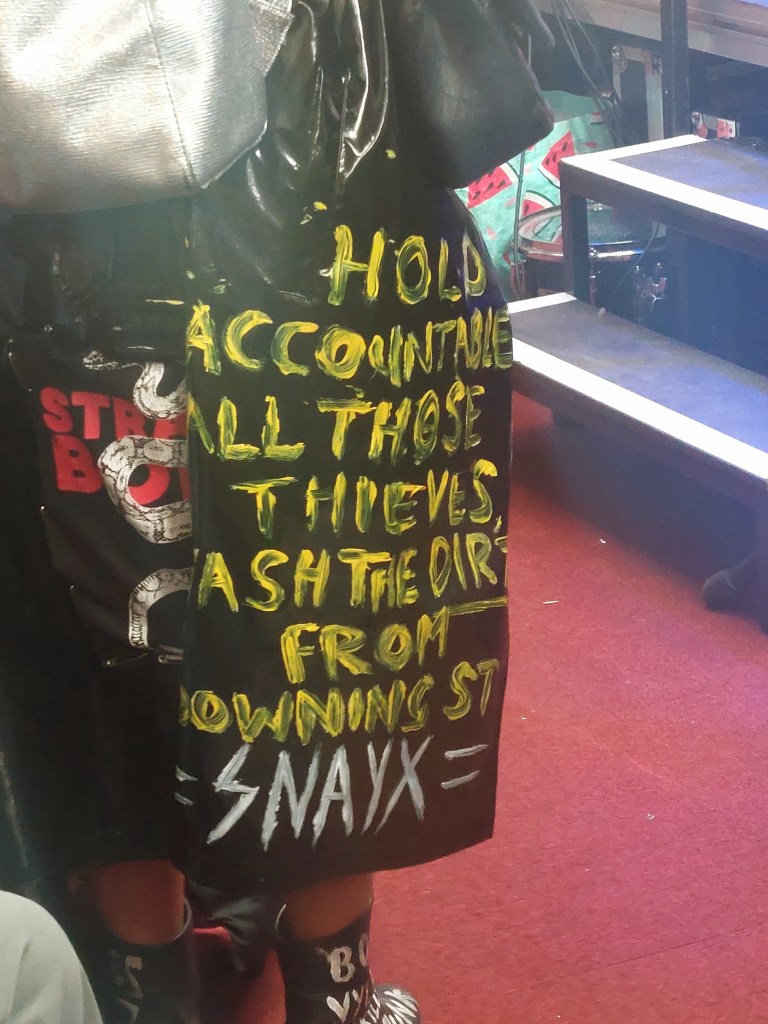 HOLD
ACCOUNTABLE
ALL THOSE
THIEVES,
ASH THE DIRT
FROM
DOWNING ST
= SNAYX =
STRA
BO
BO